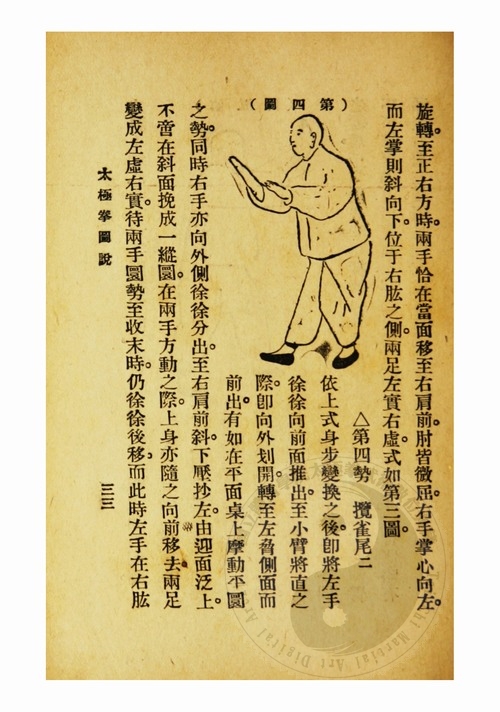 旋轉。至正右方時。兩手恰在當面移至右肩前。肘皆微屈。右手掌心向左。
而左掌則斜向下。位于右肱之側。兩足左實右虛。式如第三圖。
△第四勢　攬雀尾二
依上式身步變換之後。卽將左手
徐徐向前面推出。至小臂將直之
際。卽向外划開。轉至左脅側面而
前出。有如在平面桌上摩動平圜
（第四圖）
之勢。同時右手亦向外側徐徐分出。至右肩前斜下壓抄左。由迎面泛上。
不啻在斜面挽成一縱圜。在兩手方動之際。上身亦隨之向前移去。兩足
變成左虛右實。待兩手圜勢至收末時。仍徐徐後移。而此時左手在右肱
太極拳圖說
三三